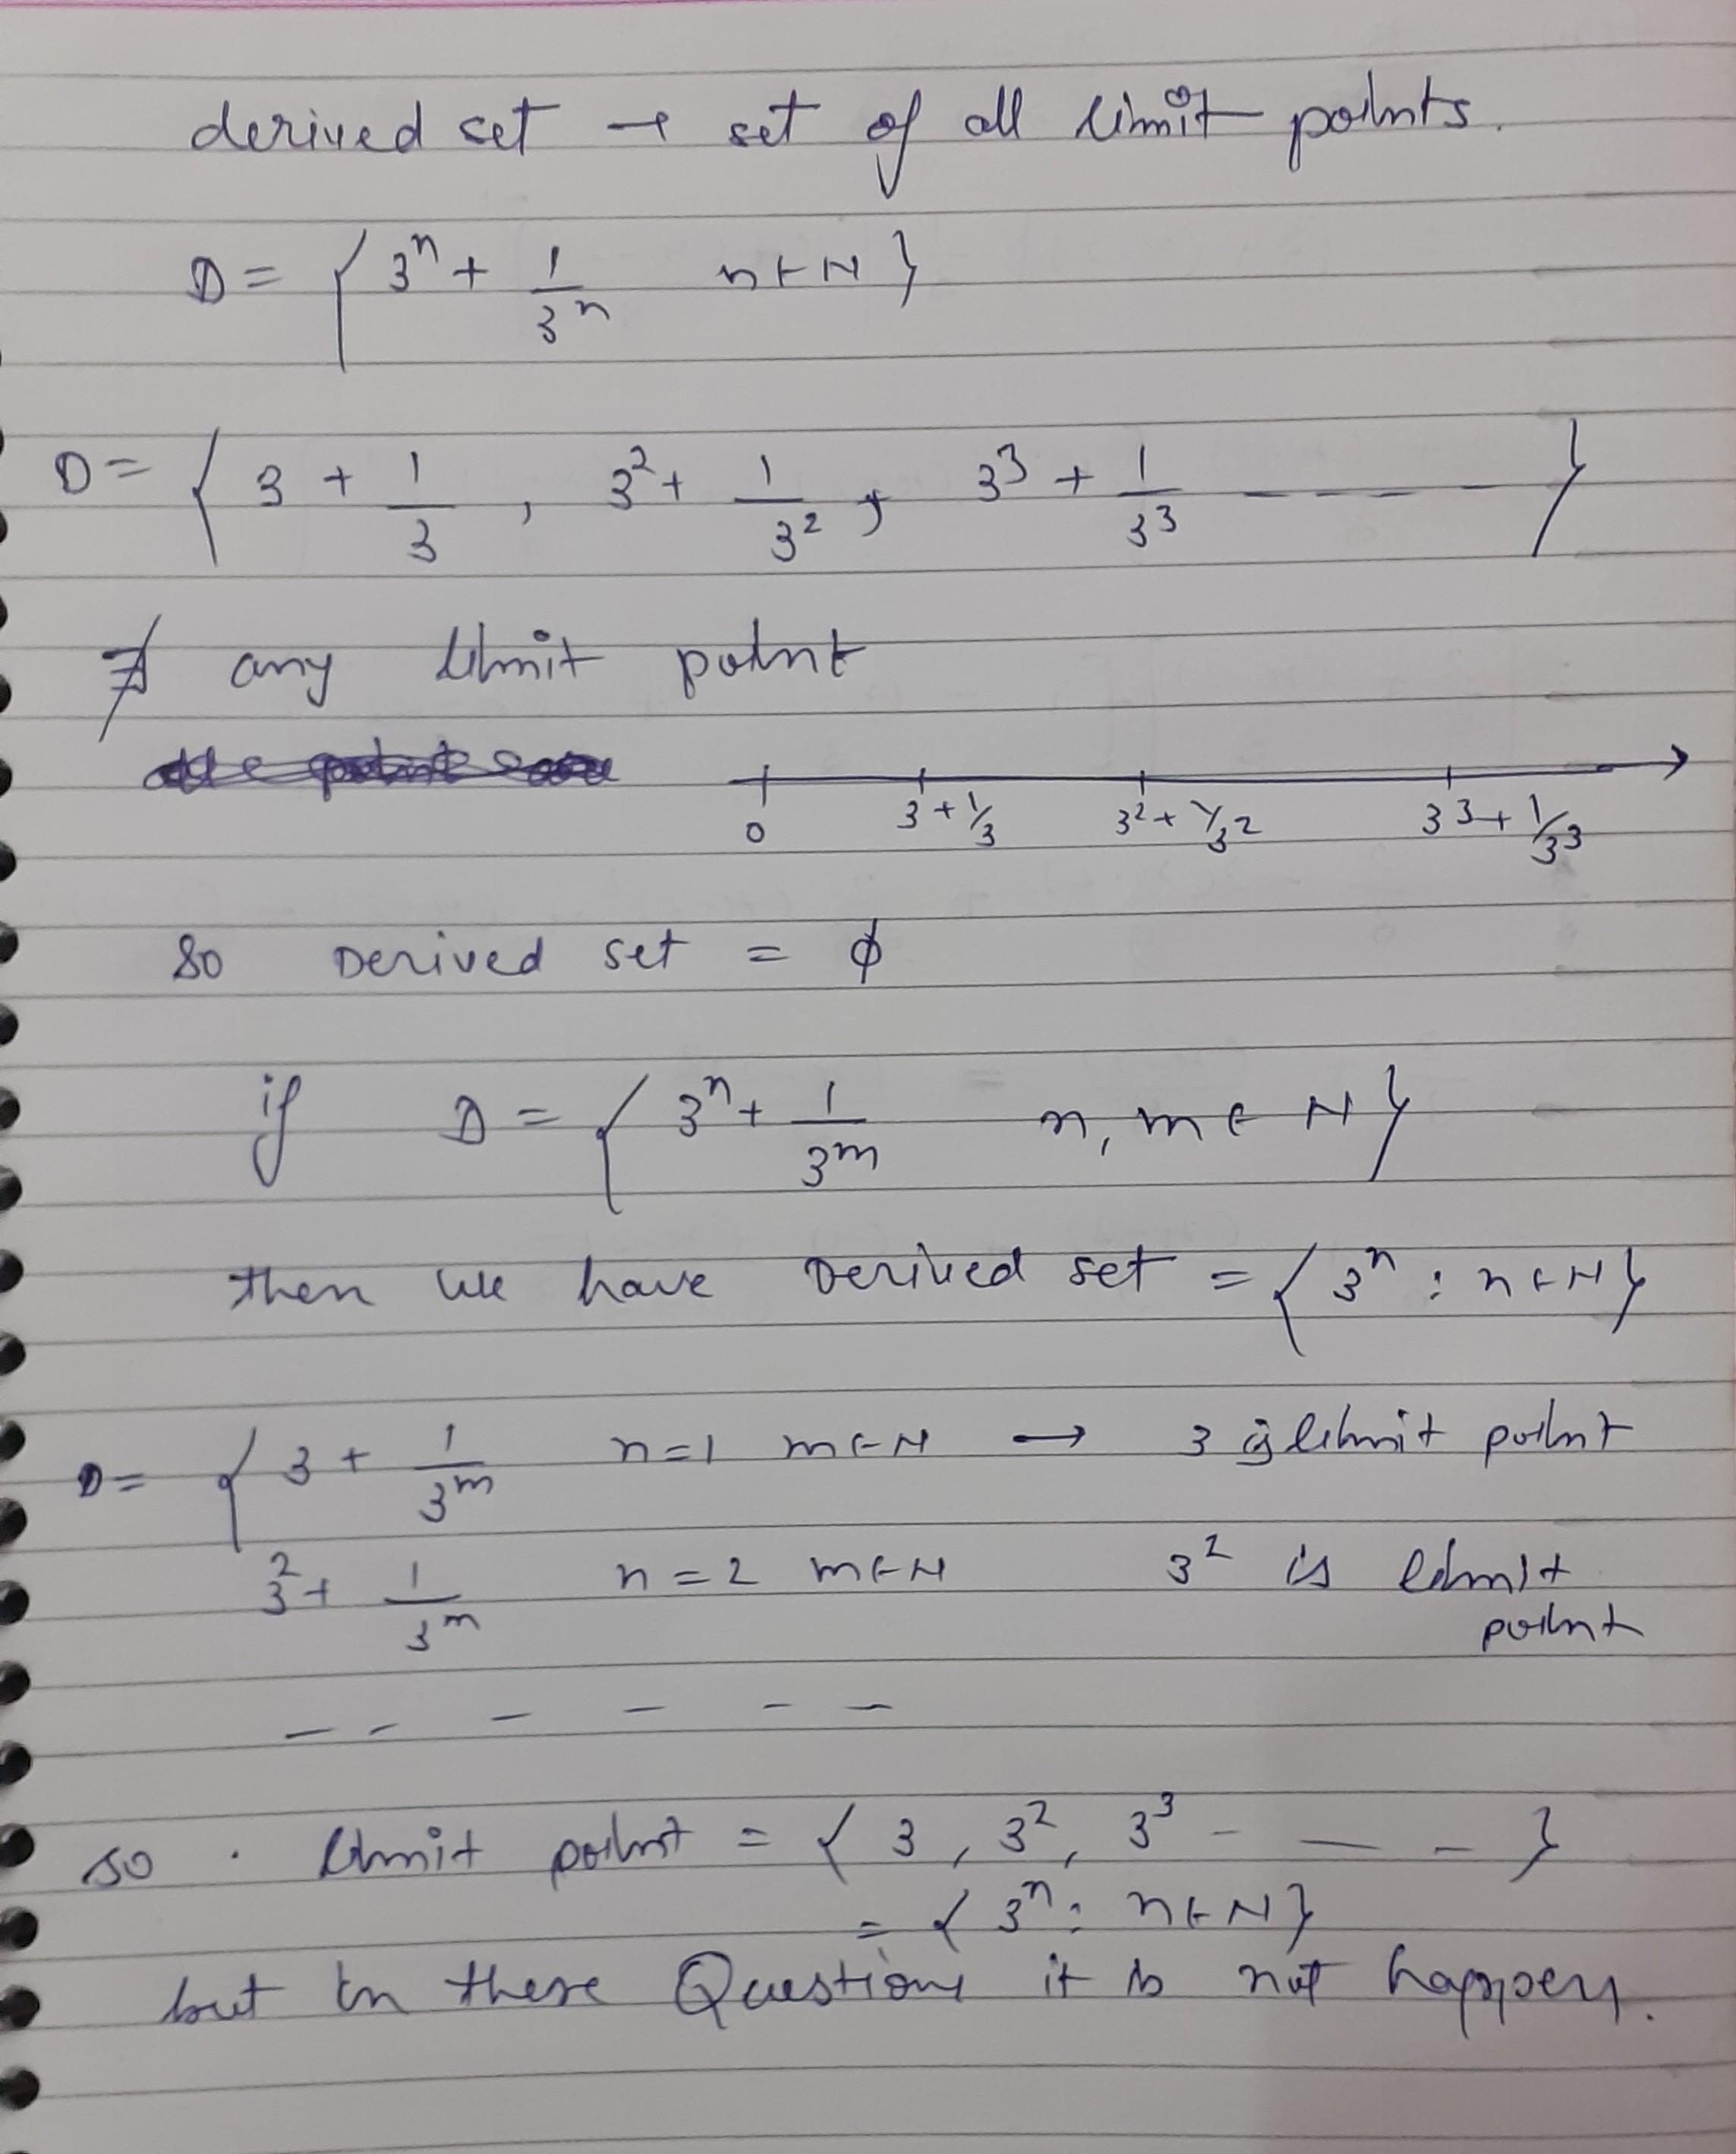 derived set → set of all limit points.
D = { 3ⁿ + 1/3ⁿ n ∈ N }
D = { 3 + 1/3 , 3² + 1/3² , 3³ + 1/3³ - - - - }
∄ any limit point
0 3 + 1/3 3² + 1/3² 3³ + 1/3³
So Derived set = ϕ
if D = { 3ⁿ + 1/3ᵐ n, m ∈ N }
then we have Derived set = { 3ⁿ : n ∈ N }
D = { 3 + 1/3ᵐ n = 1 m ∈ N → 3 is limit point
3² + 1/3ᵐ n = 2 m ∈ N 3² is limit
point
- - - - - -
so . limit point = { 3 , 3² , 3³ - - - }
= { 3ⁿ : n ∈ N }
but in these Questions it is not happen.